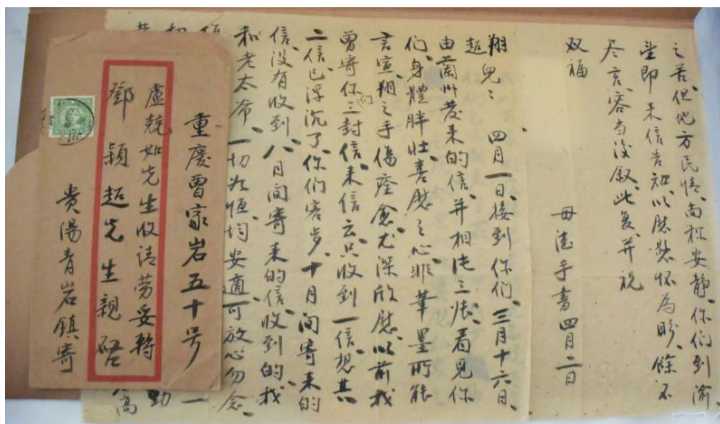 之苦。但地方民情、尚称安静、你们到渝
望即来信告知、以慰悬怀为盼、馀不
尽言、容当后叙、此复、并祝
双福
母德手书 四月二日
翔超兒：四月一日接到你们、三月十六日、
由蘭州發来的信、并相片三张、看見你
们、身體胖壮、喜慰之心、非筆墨所能
言宣、翔之手傷痊愈、尤深欣慰、以前我
曾寄你们三封信、来信云只收到一信、想其
二信已浮沉了、你们客岁、十月间寄来的
信、没有收到、八月间寄来的信、收到的、我
和老太爷、一切均安適可放心勿念、
重慶曾家岩五十号
盧競如先生收請劳妥轉
鄧穎超先生親啓
貴陽青岩鎮寄